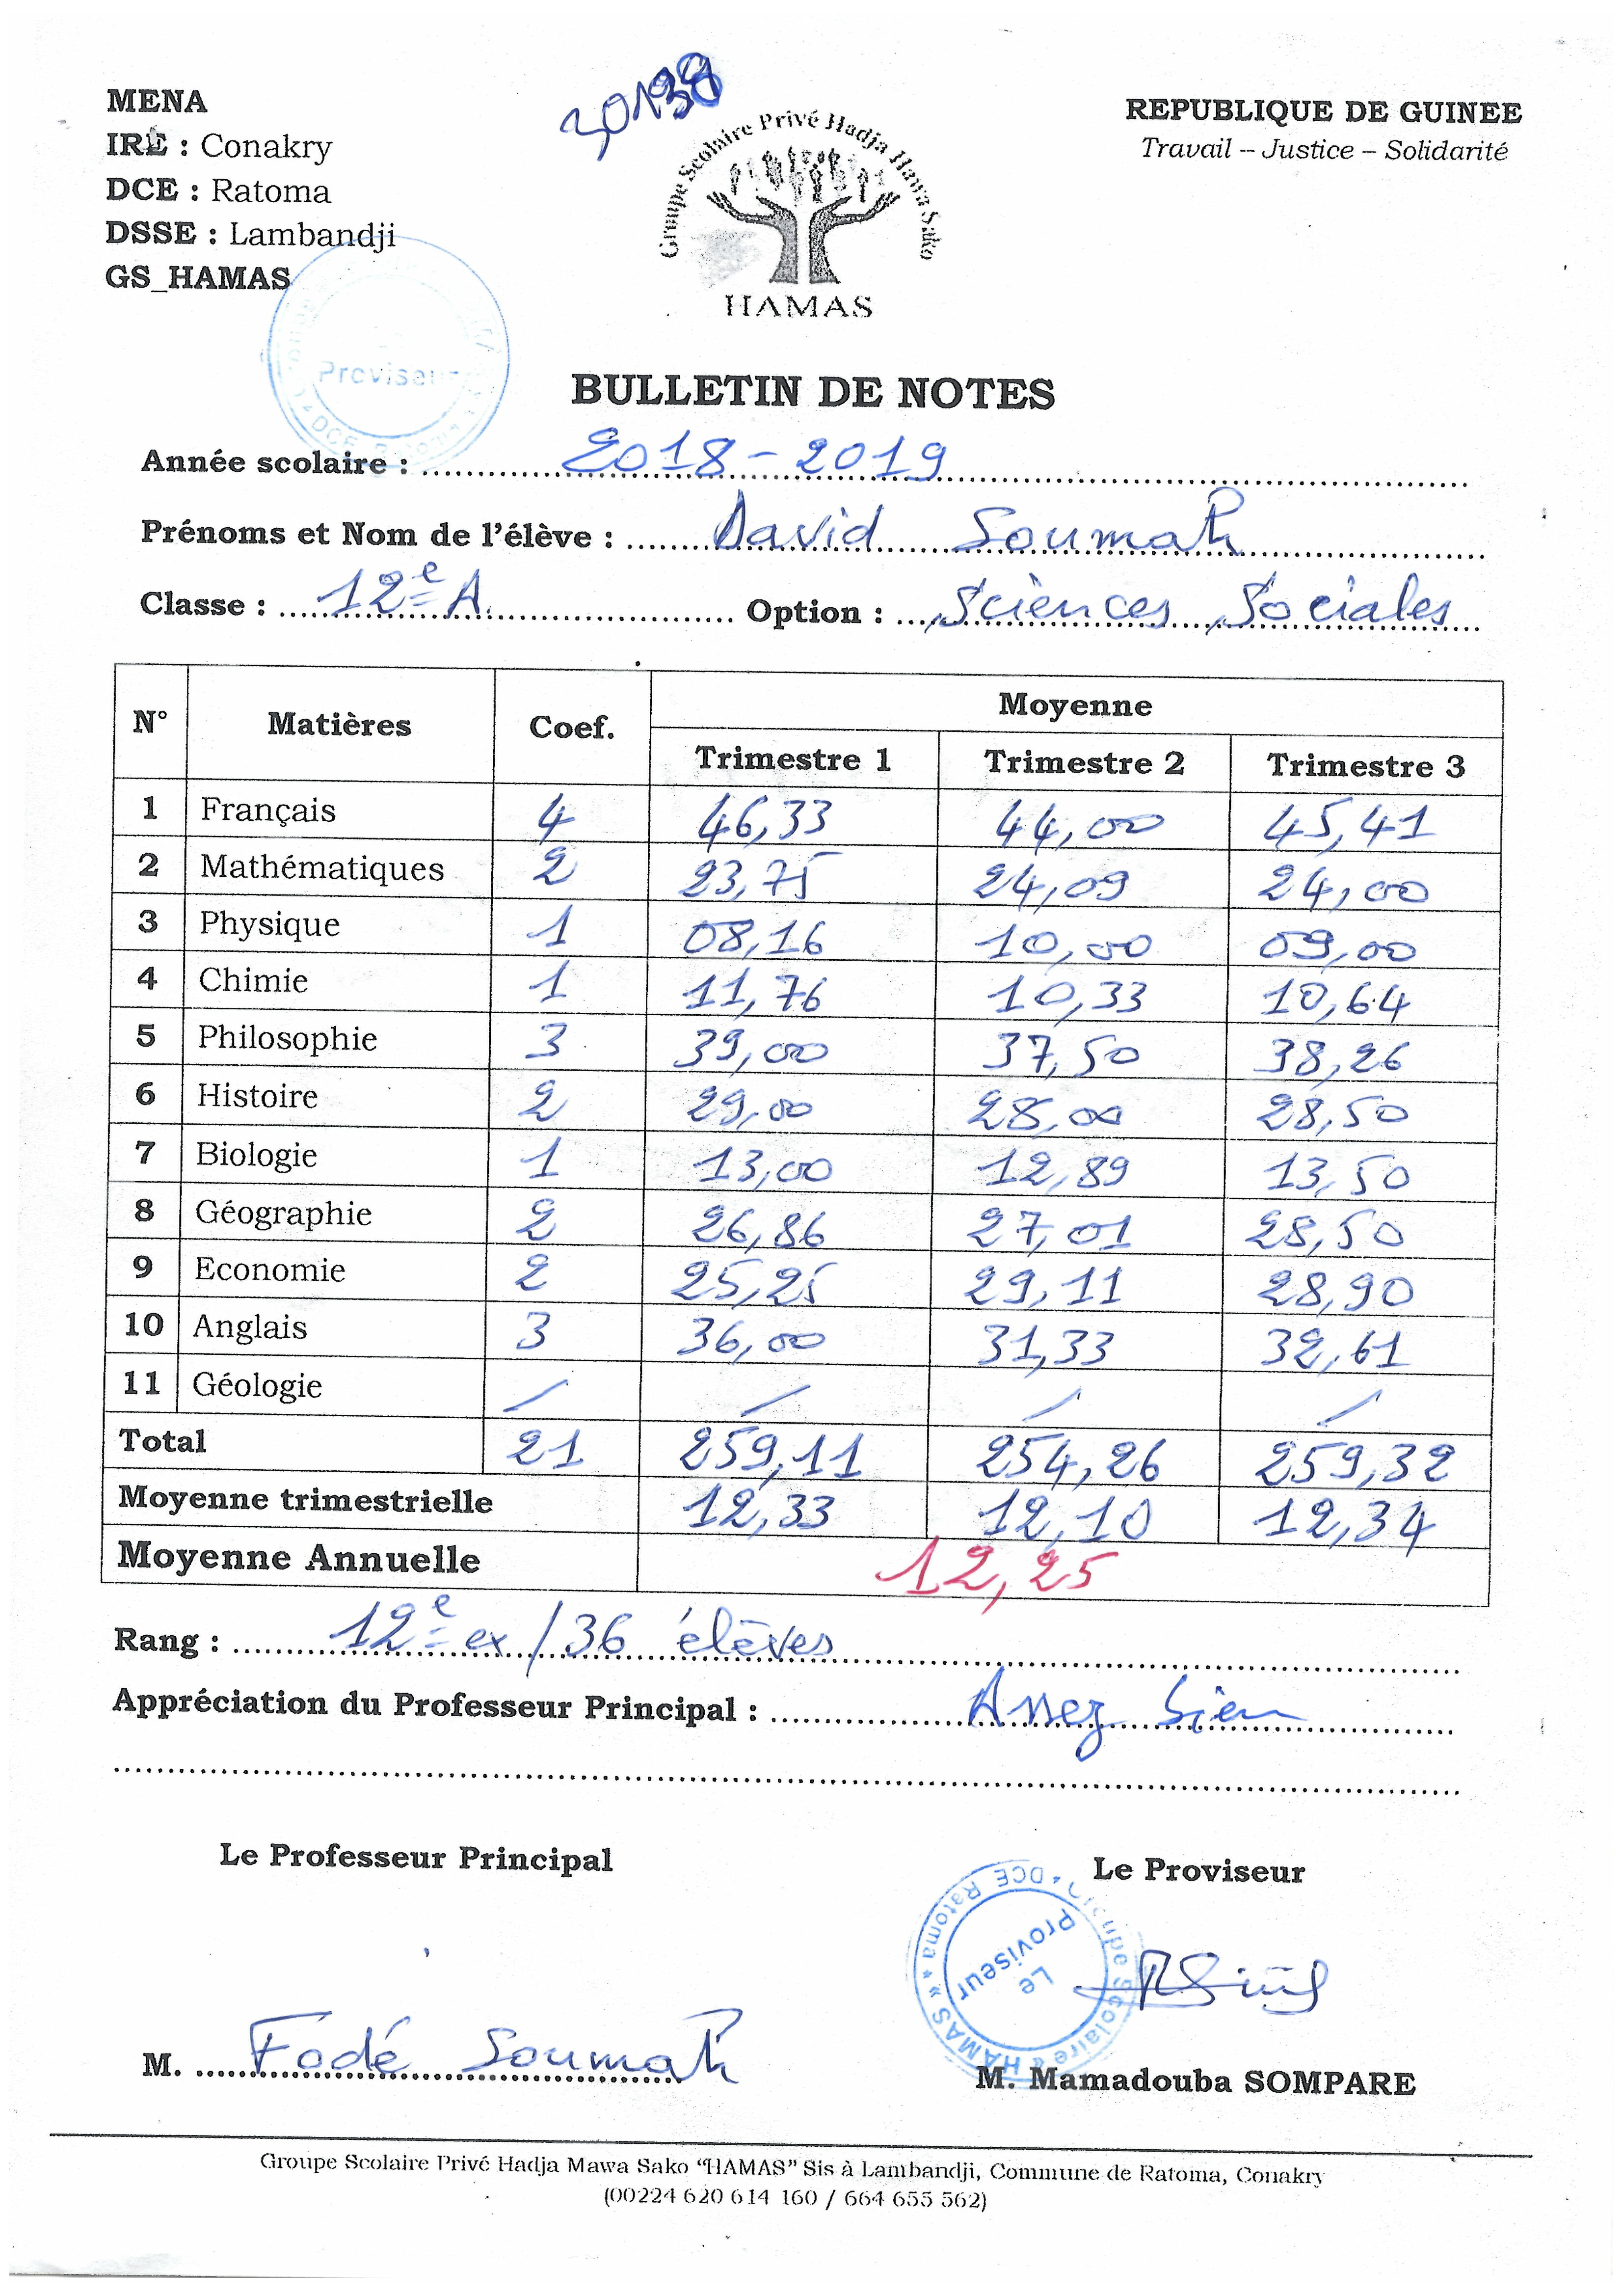 MENA
IRE : Conakry
DCE : Ratoma
DSSE : Lambandji
GS_HAMAS
Groupe Scolaire Privé Hadja Hawa Sako
HAMAS
REPUBLIQUE DE GUINEE
Travail – Justice – Solidarité
Proviseur
BULLETIN DE NOTES
Année scolaire : 2018 - 2019
Prénoms et Nom de l'élève : David Soumah
Classe : 12e A Option : Sciences Sociales
N° Matières Coef. Moyenne
Trimestre 1 Trimestre 2 Trimestre 3
1 Français 4 46,33 44,00 45,41
2 Mathématiques 2 23,75 24,09 24,00
3 Physique 1 08,16 10,00 09,00
4 Chimie 1 11,76 10,33 10,64
5 Philosophie 3 39,00 37,50 38,26
6 Histoire 2 29,00 28,00 28,50
7 Biologie 1 13,00 12,89 13,50
8 Géographie 2 26,86 27,01 28,50
9 Economie 2 25,25 29,11 28,90
10 Anglais 3 36,00 31,33 32,61
11 Géologie / / / /
Total 21 259,11 254,26 259,32
Moyenne trimestrielle 12,33 12,10 12,34
Moyenne Annuelle 12,25
Rang : 12e ex / 36 élèves
Appréciation du Professeur Principal : Assez bien
Le Professeur Principal
Le Proviseur
DCE Ratoma * Groupe Scolaire « HAMAS » *
Le Proviseur
M. Fodé Soumah
M. Mamadouba SOMPARE
Groupe Scolaire Privé Hadja Mawa Sako "HAMAS" Sis à Lambandji, Commune de Ratoma, Conakry
(00224 620 614 160 / 664 655 562)